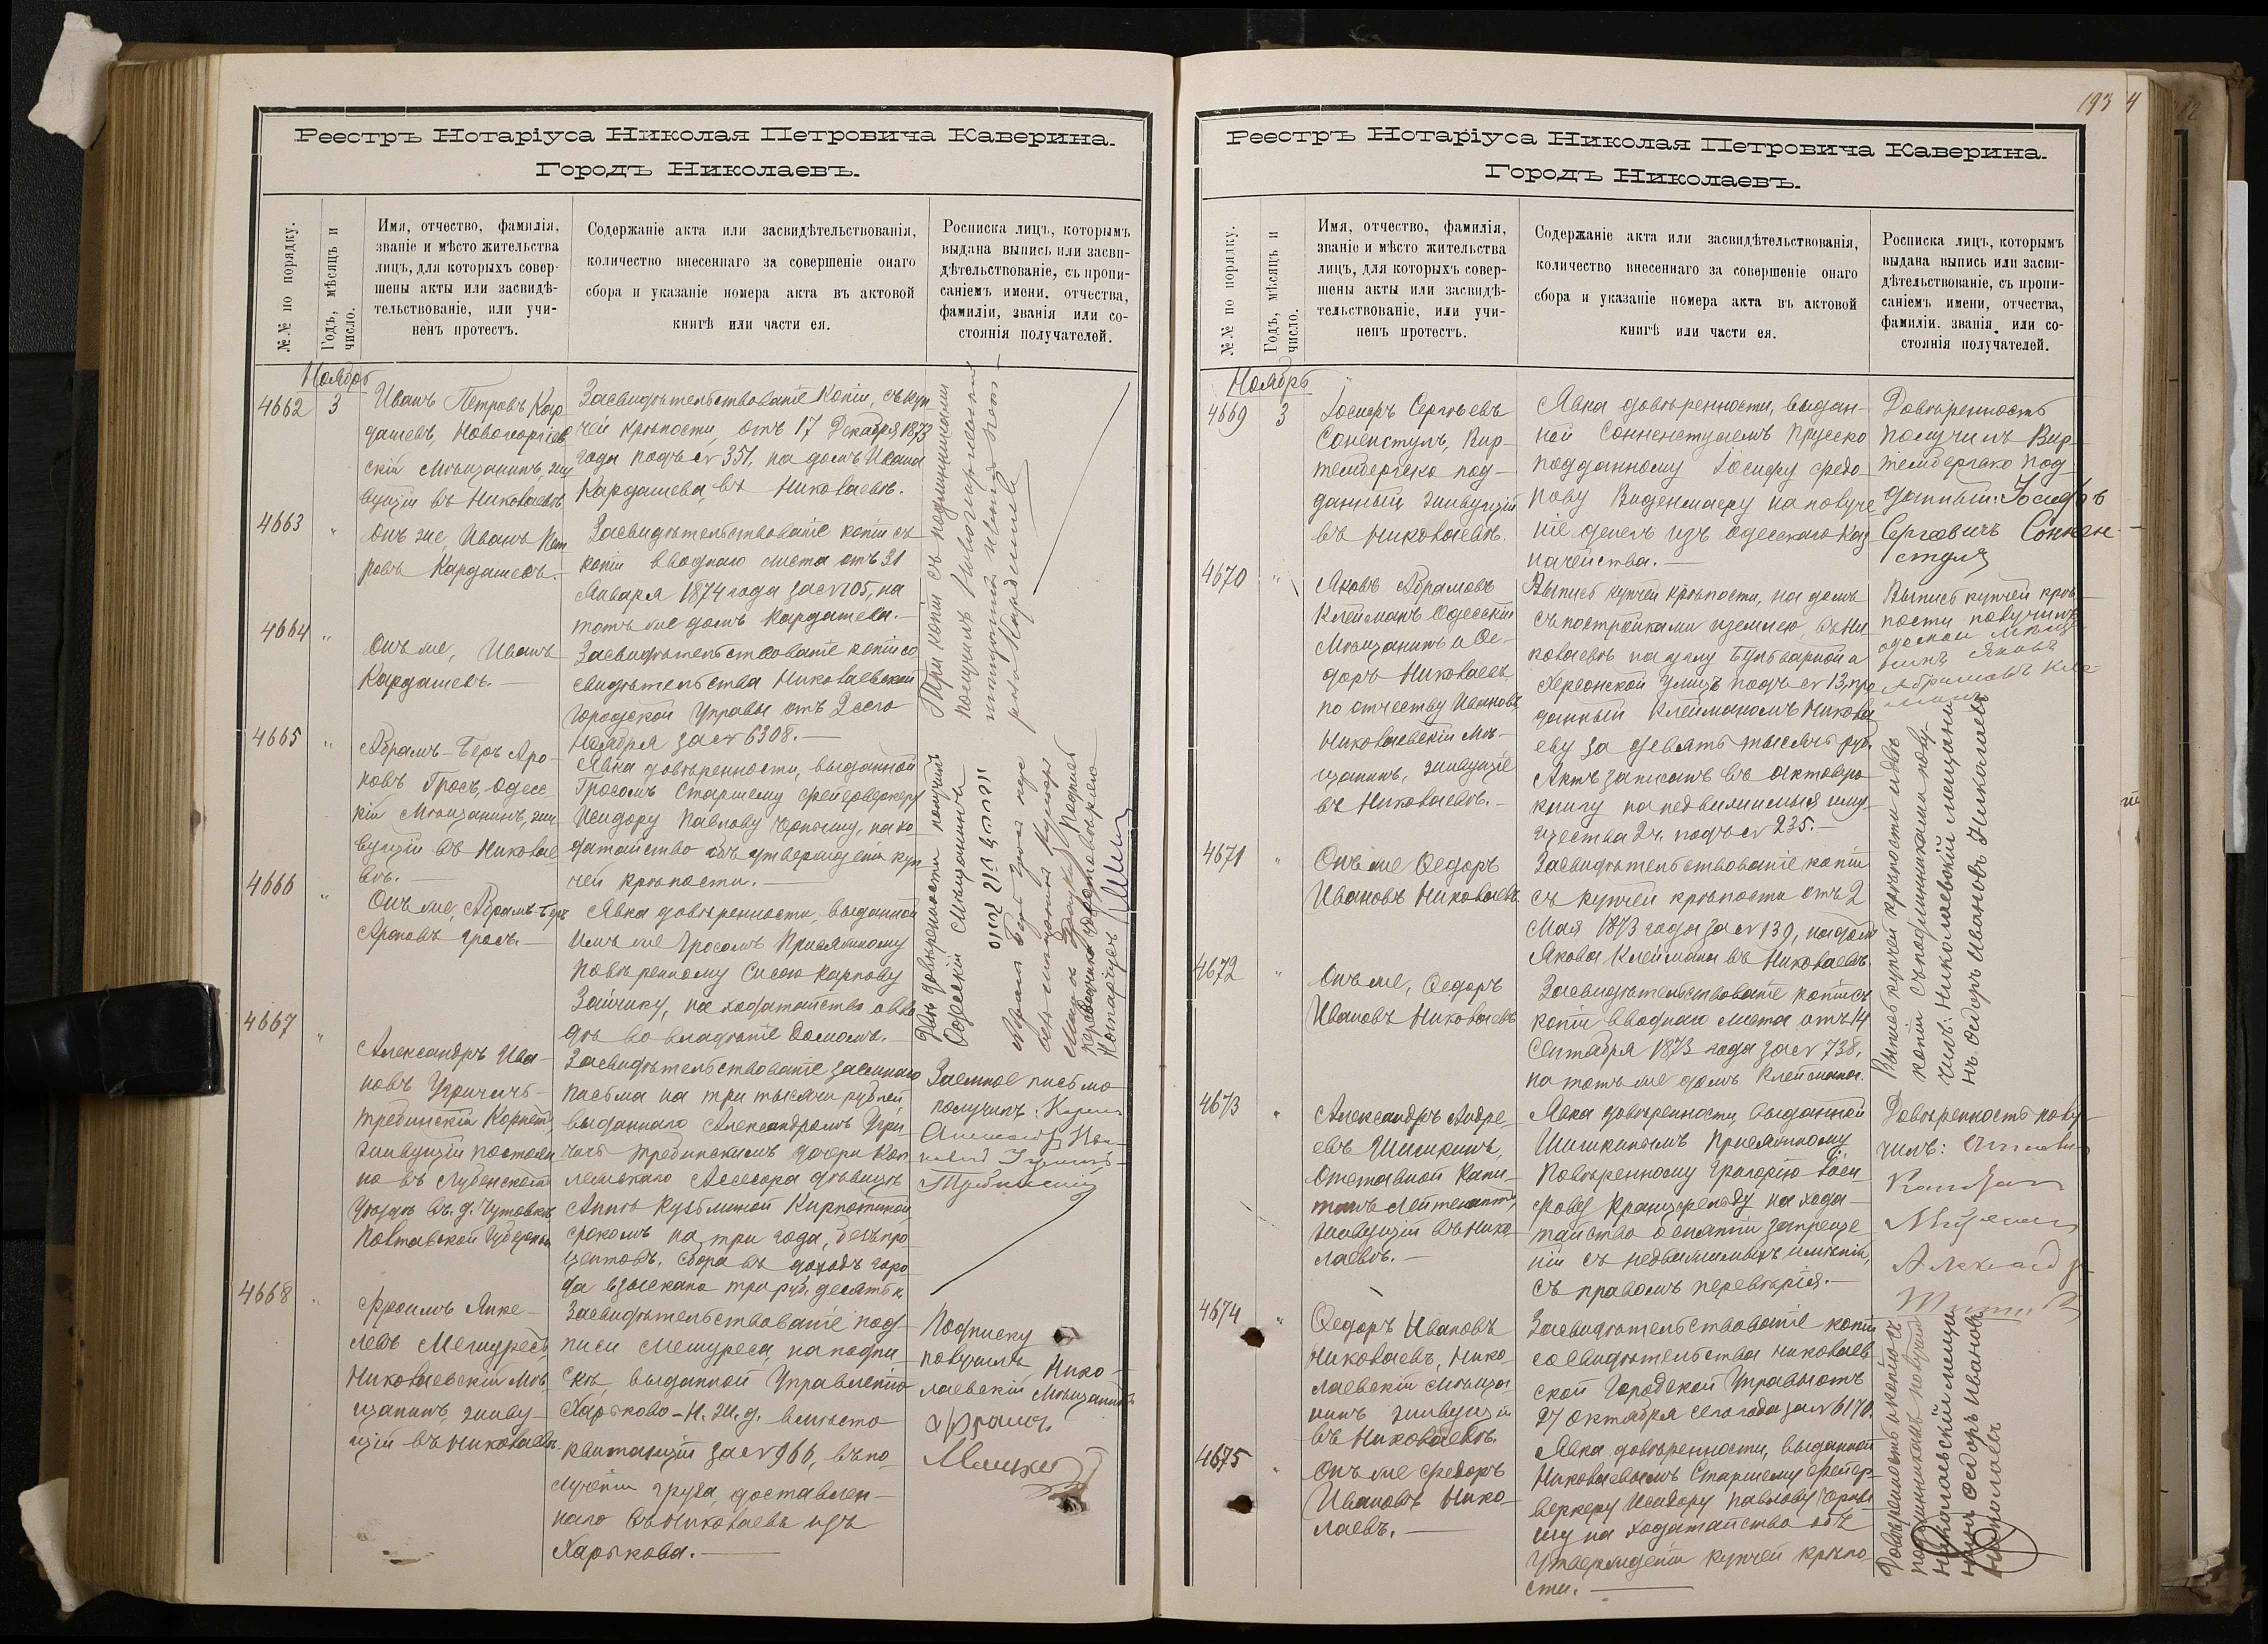 Реестръ Нотаріуса Николая Петровича Каверина.
Городъ Николаевъ.
№№ по порядку.
Годъ, мѣсяцъ и
число.
Имя, отчество, фамилія,
званіе и мѣсто жительства
лицъ, для которыхъ совер-
шены акты или засвидѣ-
тельствованіе, или учи-
ненъ протестъ.
Содержаніе акта или засвидѣтельствованія,
количество внесеннаго за совершеніе онаго
сбора и указаніе номера акта въ актовой
книгѣ или части ея.
Росписка лицъ, которымъ
выдана выпись или засви-
дѣтельствованіе, съ пропи-
саніемъ имени. отчества,
фамиліи, званія или со-
стоянія получателей.
Ноябрь
4662
3
Иванъ Петровъ Кар
дашевъ, Новогеоргіев
скій Мѣщанинъ, жи
вущій въ Николаевѣ
Засвидѣтельствованіе копіи, съ куп
чей крѣпости, отъ 17 Декабря 1873
года подъ № 351, на домъ Ивана
Кардашева, въ Николаевѣ.
4663
"
Онъ же, Иванъ Пет
ровъ Кардашевъ.
Засвидѣтельствованіе копіи съ
копіи вводнаго листа отъ 31
Января 1874 года за № 105, на
тотъ же домъ Кардашева.
4664
"
Онъ же, Иванъ
Кардашевъ.
Засвидѣтельствованіе копіи со
свидѣтельства Николаевской
Городской Управы отъ 2 сего
Ноября за № 6308.
Три копіи съ подлинниками
получилъ Новогеоргіевскій
мѣщанинъ Иванъ Пет
ровъ Кардашевъ
4665
"
Абрамъ-Беръ Аро-
новъ Гросъ, Одесс
кій Мѣщанинъ, жи
вущій въ Николае
вѣ.
Явка довѣренности, выданной
Гросомъ Старшему фейерверкеру
Исидору Павлову Черныму, на хо
датайство объ утвержденіи куп
чей крѣпости.
4666
"
Онъ же, Абрамъ-Беръ
Ароновъ Гросъ.
Явка довѣренности, выданной
имъ же Гросомъ Присяжному
повѣренному Сисою Карпову
Зайчику, на ходатайство о вво
дѣ во владѣніе домомъ.
Двѣ довѣренности получилъ
Одесскій Мѣщанинъ
Нотаріусъ
4667
"
Александръ Ива-
новъ Угричичъ-
Требинскій Корнетъ
живущій постоян
но въ Лубенскомъ
Уѣздѣ въ д. Чутовкѣ
Полтавской Губерніи
Засвидѣтельствованіе заемнаго
письма на три тысячи рублей
выданнаго Александромъ Угри-
чичъ Требинскимъ дочери Кол
лежскаго Ассесора дѣвицѣ
Аннѣ Кузьминой Кирпотиной
срокомъ на три года, безъ про
центовъ. Сбора въ доходъ горо
да взыскано три руб. десять к.
Заемное письмо
получилъ: Корнетъ
Александръ Ива-
новъ Угричичъ-
Требинскій
4668
"
Фроимъ Янке-
левъ Мешуресъ,
Николаевскій Мѣ
щанинъ, живу-
щій въ Николаевѣ.
Засвидѣтельствованіе под-
писи Мешуреса, на подпи
скѣ, выданной Управленію
Харьково-Н. ж. д. вмѣсто
квитанціи за № 966, въ по-
лученіи груза, доставлен-
наго въ Николаевъ изъ
Харькова.
Подписку
получилъ Нико-
лаевскій Мѣщанинъ
Фроимъ
193
4
Реестръ Нотаріуса Николая Петровича Каверина.
Городъ Николаевъ.
№№ по порядку.
Годъ, мѣсяцъ и
число.
Имя, отчество, фамилія,
званіе и мѣсто жительства
лицъ, для которыхъ совер-
шены акты или засвидѣ-
тельствованіе, или учи-
ненъ протестъ.
Содержаніе акта или засвидѣтельствованія,
количество внесеннаго за совершеніе онаго
сбора и указаніе номера акта въ актовой
книгѣ или части ея.
Росписка лицъ, которымъ
выдана выпись или засви-
дѣтельствованіе, съ пропи-
саніемъ имени, отчества,
фамиліи. званія или со-
стоянія получателей.
Ноябрь
4669
3
Іосифъ Сергѣевъ
Соненстулъ, Вир-
тембергско под-
данный живущій
въ Николаевѣ.
Явка довѣренности, выдан-
ной Сонненстулемъ Прусско
подданному Іосифу Федо
рову Виденмаеру на получе
ніе денегъ изъ Одесскаго Каз
начейства.
Довѣренность
получилъ Вир-
тембергско под
данный: Іосифъ
Сергѣевичъ Соннен-
стуль
4670
"
Яковъ Абрамовъ
Клейманъ Одесскій
Мѣщанинъ и Ѳе-
доръ Николаевъ,
по отчеству Ивановъ
Николаевскій Мѣ-
щанинъ, живущіе
въ Николаевѣ.
Выпись купчей крѣпости, на домъ
съ постройками и землею, въ Ни
колаевѣ на углу Бульварной и
Херсонской улицъ подъ № 13, про
данный Клейманомъ Никола
еву за девять тысячъ руб.
Актъ записанъ въ актовую
книгу на недвижимыя иму-
щества 2 ч. подъ № 235.
Выпись купчей крѣ-
пости получилъ
одесскій мѣща
нинъ Яковъ
Абрамовъ Клей-
манъ
4671
"
Онъ же Ѳедоръ
Ивановъ Николаевъ
Засвидѣтельствованіе копіи
съ купчей крѣпости отъ 2
Мая 1873 года за № 139, на домъ
Якова Клеймана въ Николаевѣ.
4672
"
Онъ же, Ѳедоръ
Ивановъ Николаевъ
Засвидѣтельствованіе копіи съ
копіи вводнаго листа отъ 14
Сентября 1873 года за № 738,
на тотъ же домъ Клеймана.
Выпись купчей крѣпости и двѣ
копіи съ подлинниками полу-
чилъ: Николаевскій мещани
нъ Ѳедоръ Ивановъ Николаевъ
4673
"
Александръ Андре-
евъ Шишкинъ,
Отставной Капи-
танъ Лейтенантъ,
живущій въ Нико
лаевѣ.
Явка довѣренности, выданной
Шишкинымъ Присяжному
Повѣренному Григорію Іоси
фову Кранцфельду на хода-
тайство о снятіи запреще
нія съ недвижимыхъ имѣній,
съ правомъ передовѣрія.
Довѣренность полу-
чилъ:
Александръ
4674
"
Ѳедоръ Ивановъ
Николаевъ, Нико-
лаевскій Мѣща-
нинъ живущій
въ Николаевѣ.
Засвидѣтельствованіе копіи
со свидѣтельства Николаев
ской Городской Управы отъ
27 Октября сего года за № 6170.
4675
"
Онъ же Федоръ
Ивановъ Нико-
лаевъ.
Явка довѣренности, выданной
Николаевымъ Старшему фейер-
веркеру Исидору Павлову Черны
му на ходатайство объ
утвержденіи купчей крѣпо-
сти.
Довѣренность и копію съ
подлинникомъ получилъ
Николаевскій меща
нинъ Ѳедоръ Ивановъ
Николаевъ